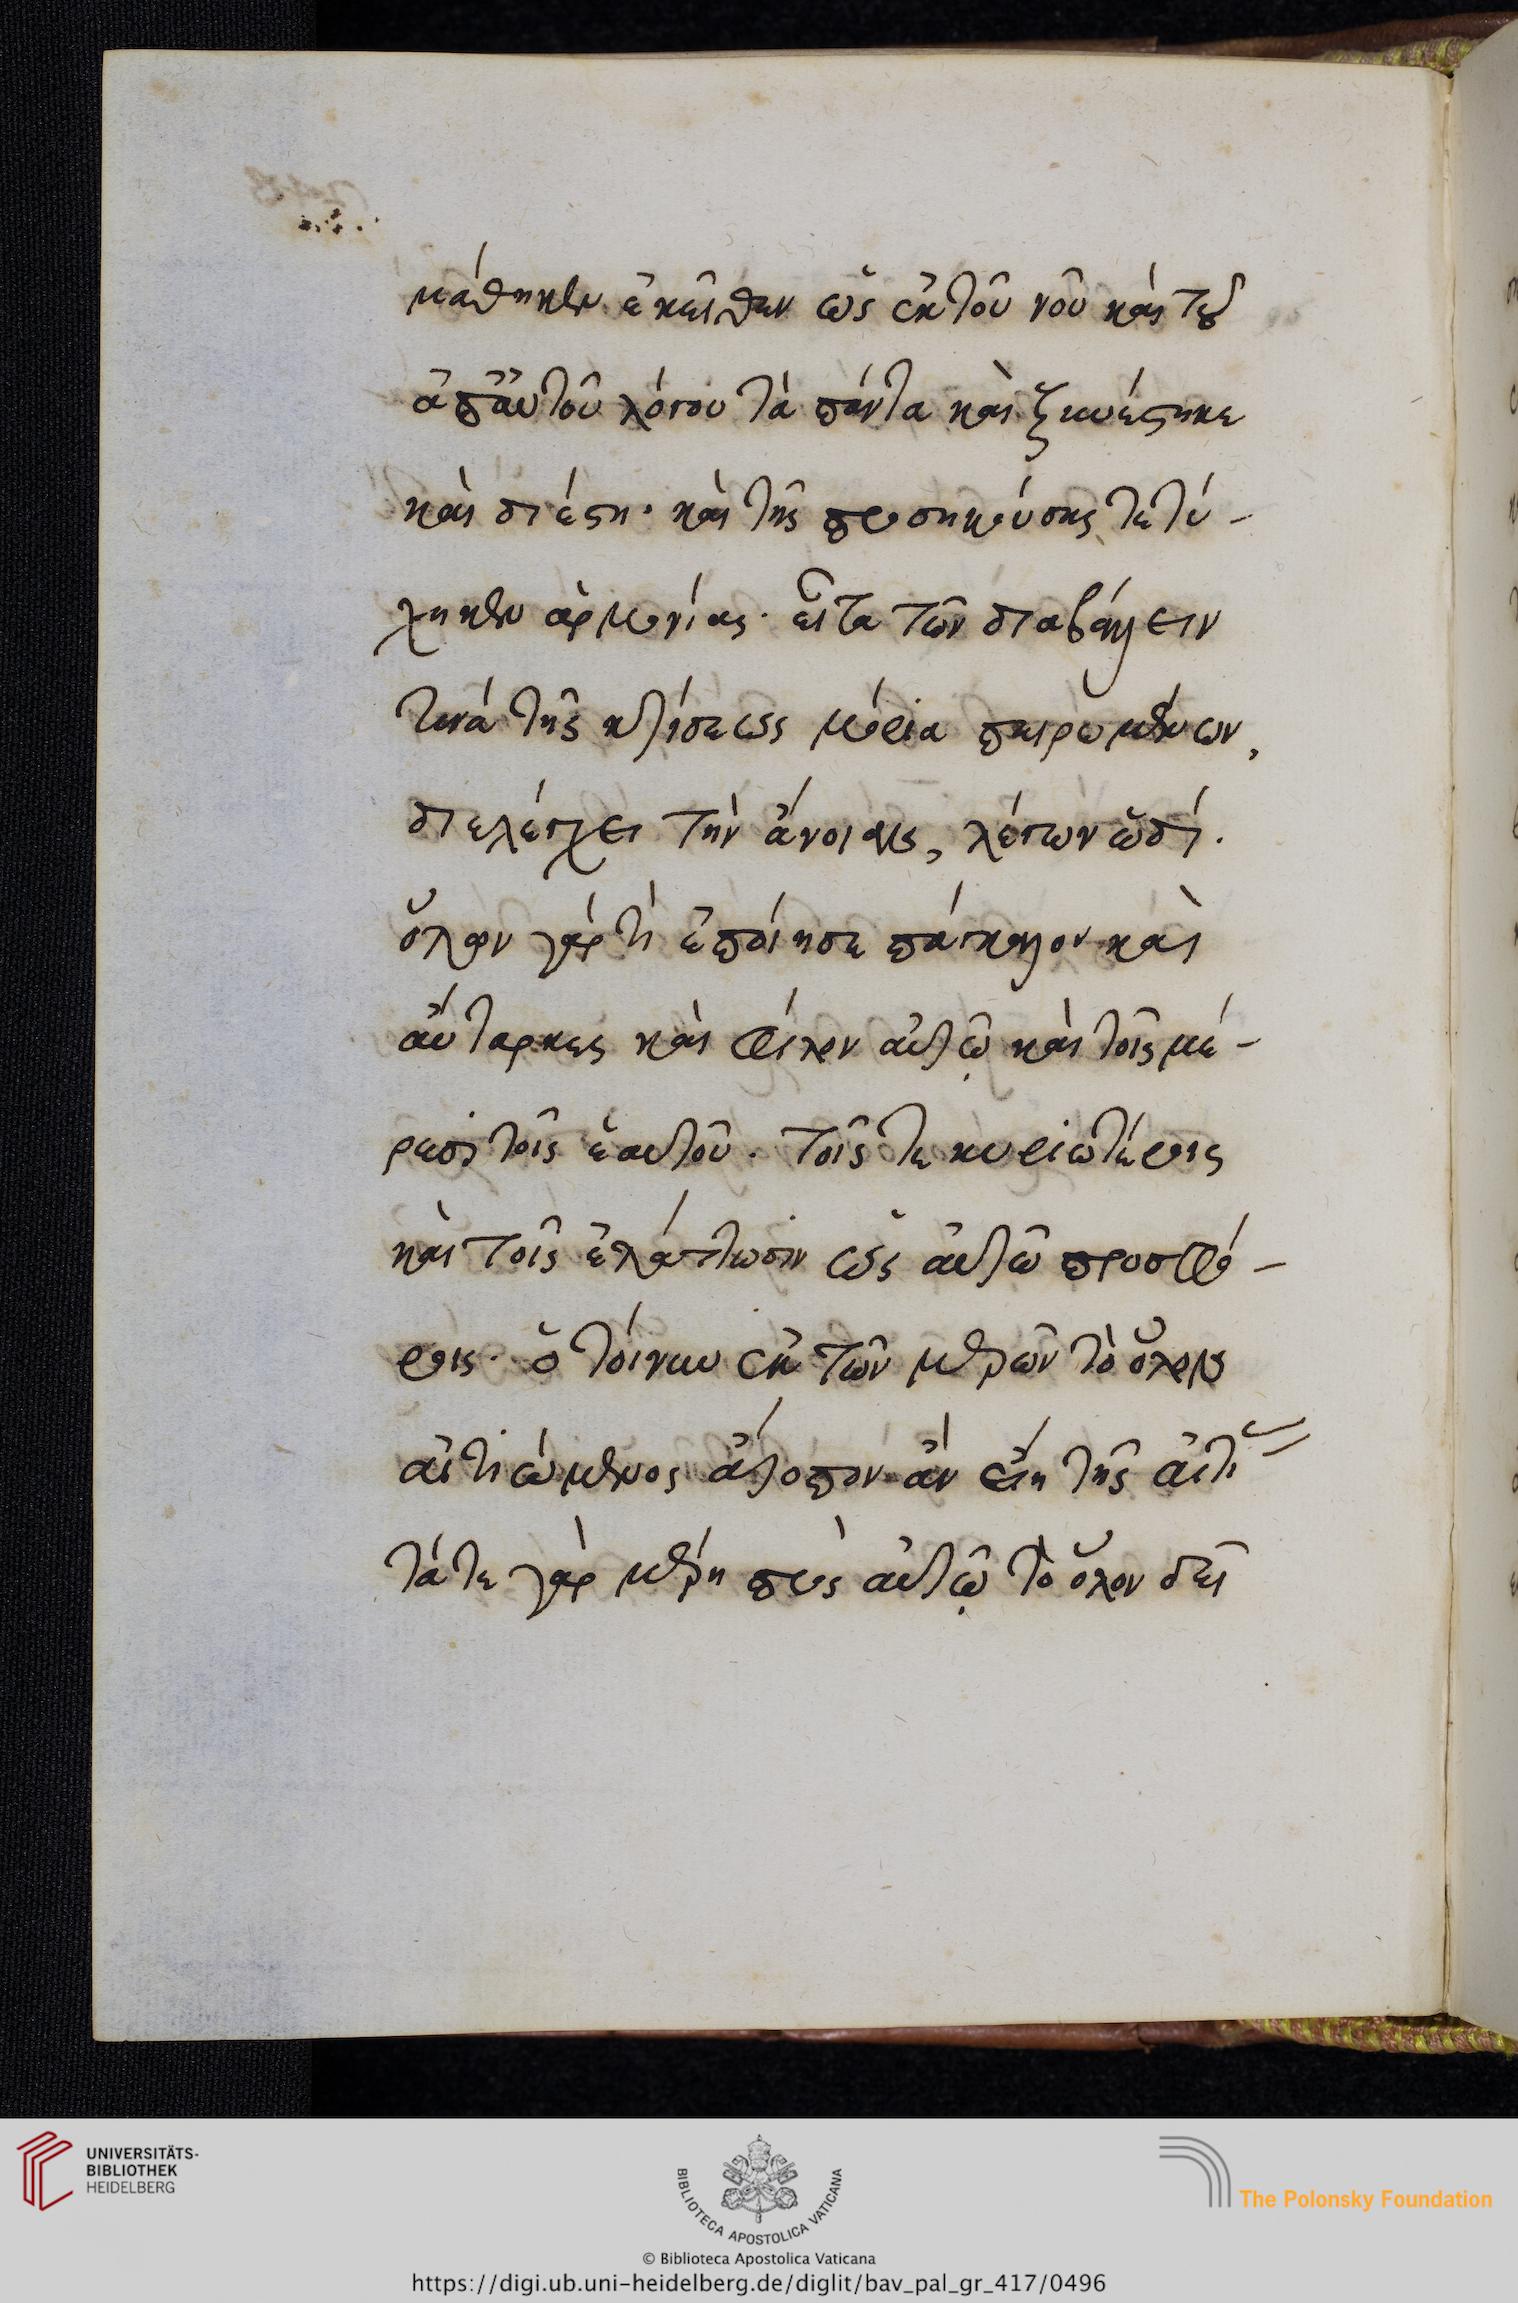 μάθημεν ἐκεῖθεν ὡς ἐκ τοῦ νοῦ καὶ τοῦ
ἀπ' αὐτοῦ λόγου τὰ πάντα καὶ ξυνέστηκε
καὶ διέστη· καὶ τῆς προσηκούσης τετύ-
χηκεν ἁρμονίας· εἶτα τῶν διαβάλλειν
τινὰ τῆς κτίσεως μόρια πειρωμένων,
διελέγχει τὴν ἄνοιαν, λέγων ὡδί·
ὅλον γάρ τι ἐποίησε πάγκαλον καὶ
αὔταρκες καὶ φίλον αὐτῷ καὶ τοῖς μέ-
ρεσι τοῖς ἑαυτοῦ· τοῖς τε κυριωτέροις
καὶ τοῖς ἐλάττωσιν ὡς αὐτῶ προσφό-
ροις· ὁ τοίνυν ἐκ τῶν μερῶν τὸ ὅλον
αἰτιώμενος ἄτοπον ἂν εἴη τῆς αἰτίας
τά τε γὰρ μέρη πρὸς αὐτῷ τὸ ὅλον δεῖ
UNIVERSITÄTS-
BIBLIOTHEK
HEIDELBERG
BIBLIOTECA APOSTOLICA VATICANA
The Polonsky Foundation
© Biblioteca Apostolica Vaticana
https://digi.ub.uni-heidelberg.de/diglit/bav_pal_gr_417/0496